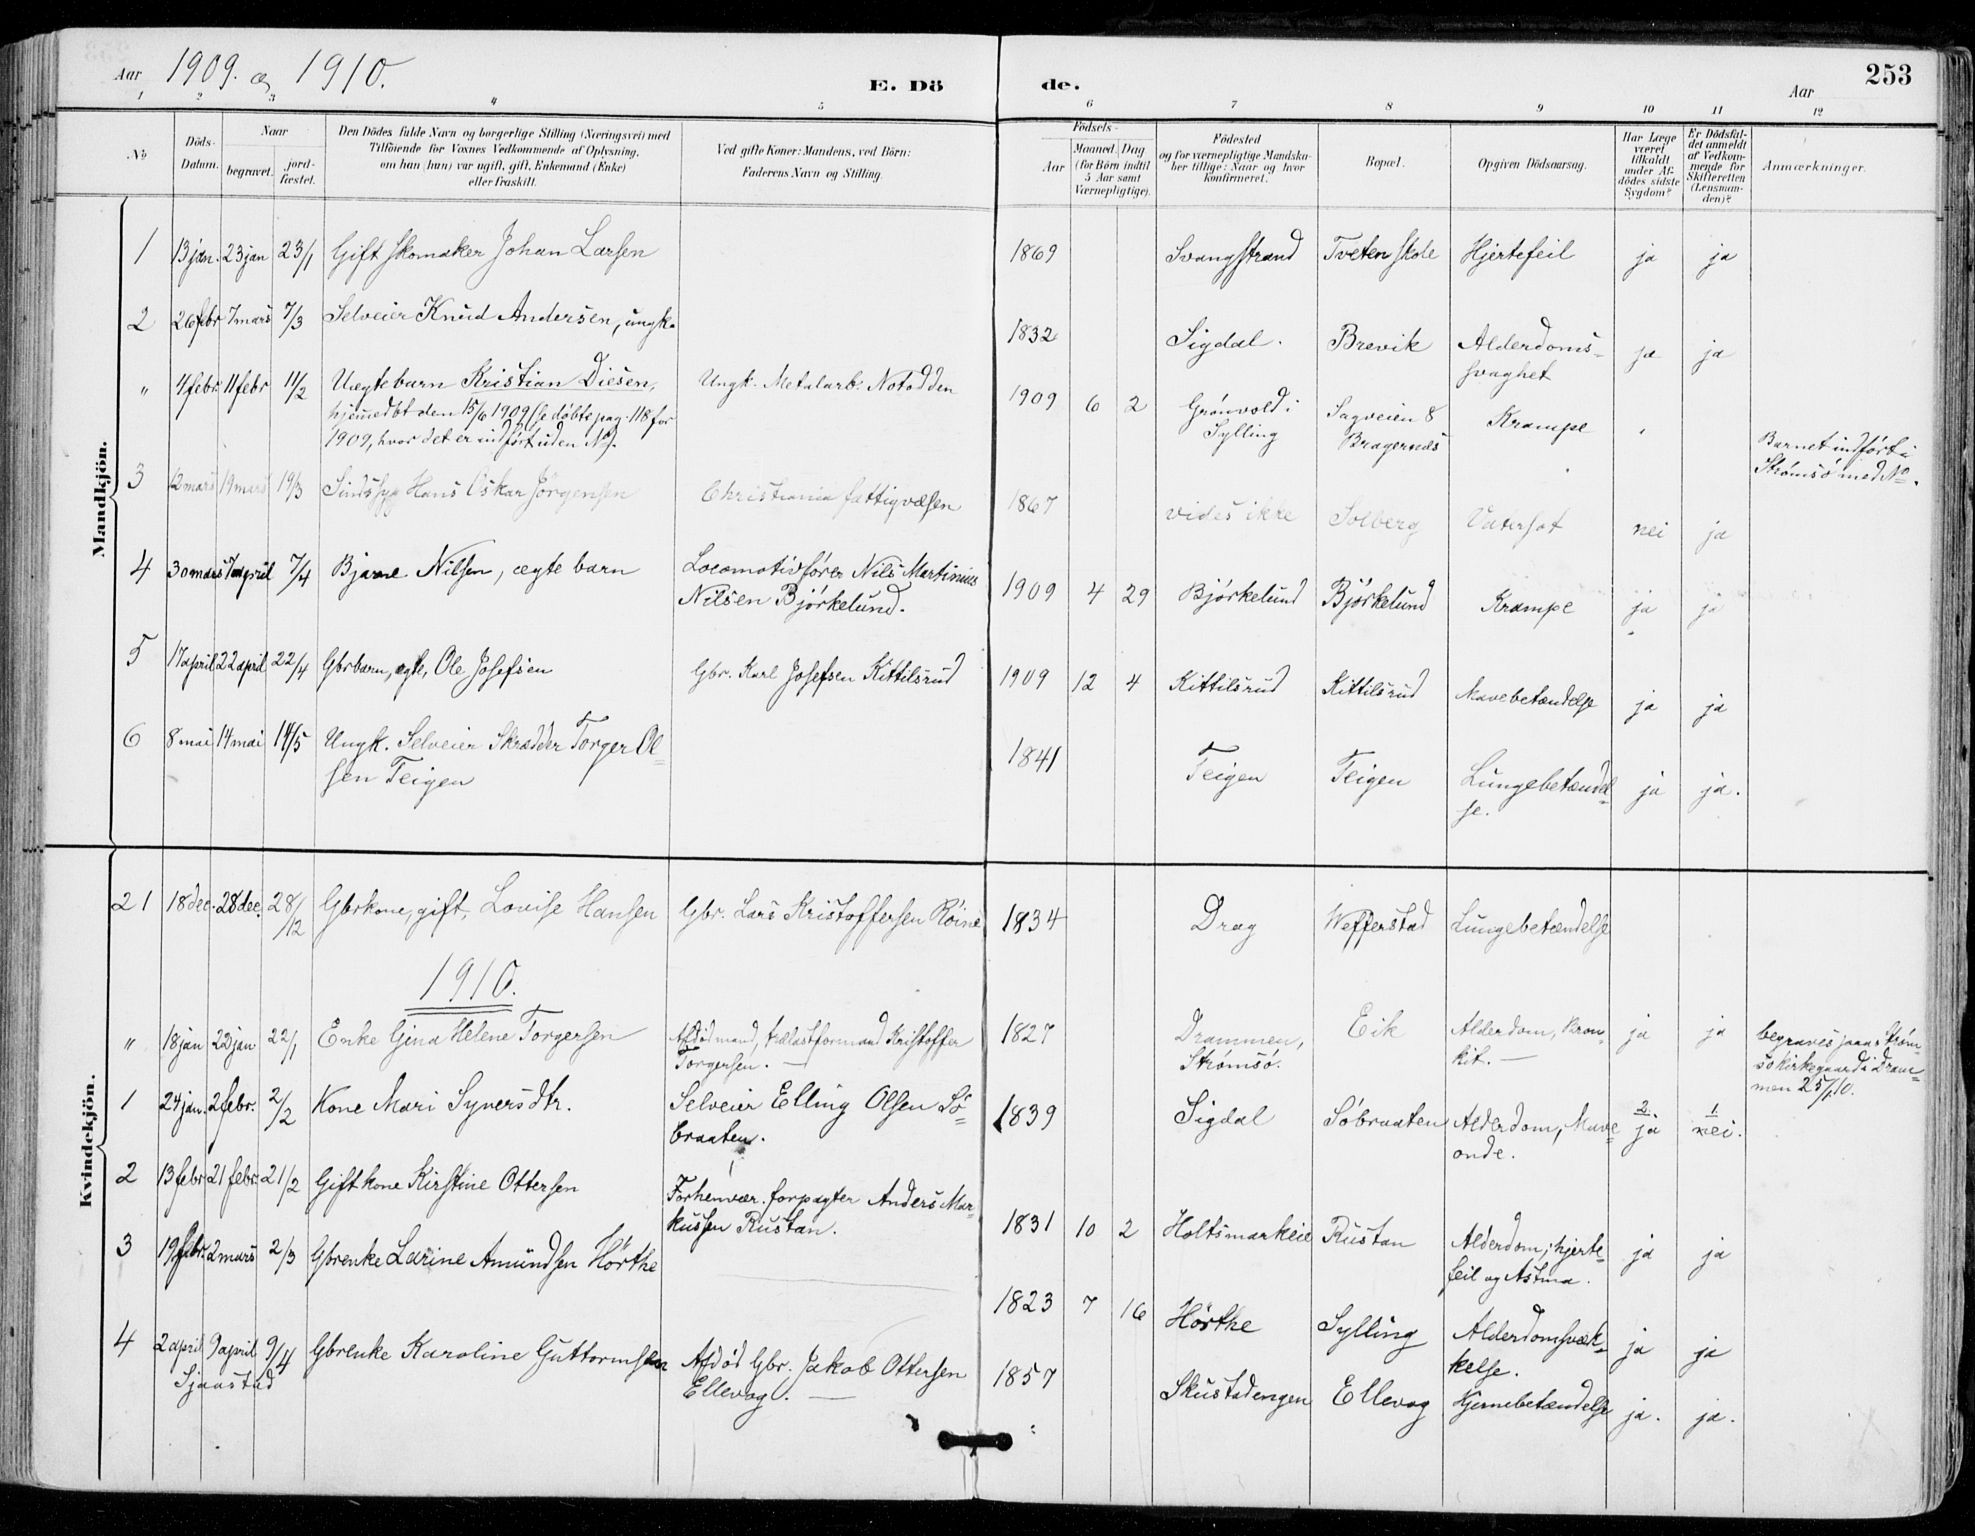 Aar 1909. og 1910.
E. Dö
de.
Aar
253
1 2 3 4 5 6 7 8 9 10 11 12
No.
Döds-
Datum.
Naar
begravet.
jord-
fæstet.
Den Dödes fulde Navn og borgerlige Stilling (Næringsvei) med
Tilföiende for Voxnes Vedkommende af Oplysning,
om han (hun) var ugift, gift, Enkemand (Enke)
eller fraskilt.
Ved gifte Koner: Mandens, ved Börn:
Faderens Navn og Stilling.
Födsels-
Aar
Maaned. Dag
(for Börn indtil
5 Aar samt
Værnepligtige).
Födested
og for værnepligtige Mandska-
ber tillige: Naar og hvor
konfirmeret.
Bopæl.
Opgiven Dödsaarsag.
Har Læge
været
tilkaldt
under Af-
dödes sidste
Sygdom?
Er Dödsfal-
det anmeldt
af Vedkom-
mende for
Skifteretten
(Lensman-
den)?
Anmærkninger.
Mandkjön.
1 13 jan. 23 jan 23/1 Gift skomaker Johan Larsen 1869 Svangstrand Tveten skole Hjertefeil ja ja
2 26 febr 7 mars 7/3 Selveier Knud Andersen, ungk. 1832 Sigdal. Brevik Alderdoms-
svaghet ja ja
" 4 febr. 11 febr 11/2 Uægtebarn Kristian Diesen, Ungk. Metalarb. Notodden 1909 6 2 Grønvold i Sagveien 8 Krampe
hjemmedbt den 15/6 1909 (se døbte pag. 118 for Sylling Bragernæs
1909, hvor det er indført uden No). Barnet indført i
Strømsø med No.
3 12 mars 19 mars 19/3 Sindssyg Hans Oskar Jörgensen Christiania fattigvæsen 1867 vides ikke Solberg Vatersot nei ja
4 30 mars 7 april 7/4 Bjarne Nilsen, ægte barn Locomotivfører Nils Martinius
Nilsen Bjørkelund. 1909 4 29 Bjørkelund Bjørkelund Krampe ja ja
5 17 april 22 april 22/4 Gbrbarn, ægte, Ole Josefsen Gbr. Karl Josefsen Kittilsrud 1909 12 4 Kittilsrud Kittilsrud Mavebetændelse ja ja
6 8 mai 14 mai 14/5 Ungk. Selveier Skrædder Torger Ol-
sen Teigen 1841 Teigen Teigen Lungebetændel-
se. ja ja.
Kvindekjön.
21 18 dec. 28 dec. 28/12 Gbrkone, gift, Lovise Hansen Gbr. Lars Kristoffersen Röine 1834 Drag Wefferstad Lungebetændelse
1910.
" 18 jan 22 jan 22/1 Enke Gina Helene Torgersen Afdød mand, trælastformand Kristoffer
Torgersen. — 1827 Drammen,
Strømsø. Eik Alderdom, Bron-
kit. — ja ja begraves paa Strøm-
sø kirkegaard i Dram-
men 25/1 10.
1 24 jan. 2 febr. 2/2 Kone Mari Synersdtr. Selveier Elling Olsen Sö-
braaten. 1839 Sigdal Söbraaten Alderdom, Mave-
onde. 2. ja 1. nei.
2 13 febr 21 febr. 21/2 Gift kone Kirstine Ottersen Forhenvær. forpagter Anders Mar-
kussen Rustan. 1831 10 2 Holtsmarkeie Rustan Alderdom, hjerte-
feil og Astma. ja ja
3 19 febr. 2 mars 2/3 Gbrenke Larine Amundsen Hörthe 1823 7 16 Hörthe Sylling Alderdomsvæk-
kelse. ja ja
4 2 april 9 april 9/4 Gbrenke Karoline Guttormsen Afdød Gbr. Jakob Ottersen
Sjaastad Ellevog. — 1857 Skustadengen Ellevog Hjernebetændelse ja. ja.